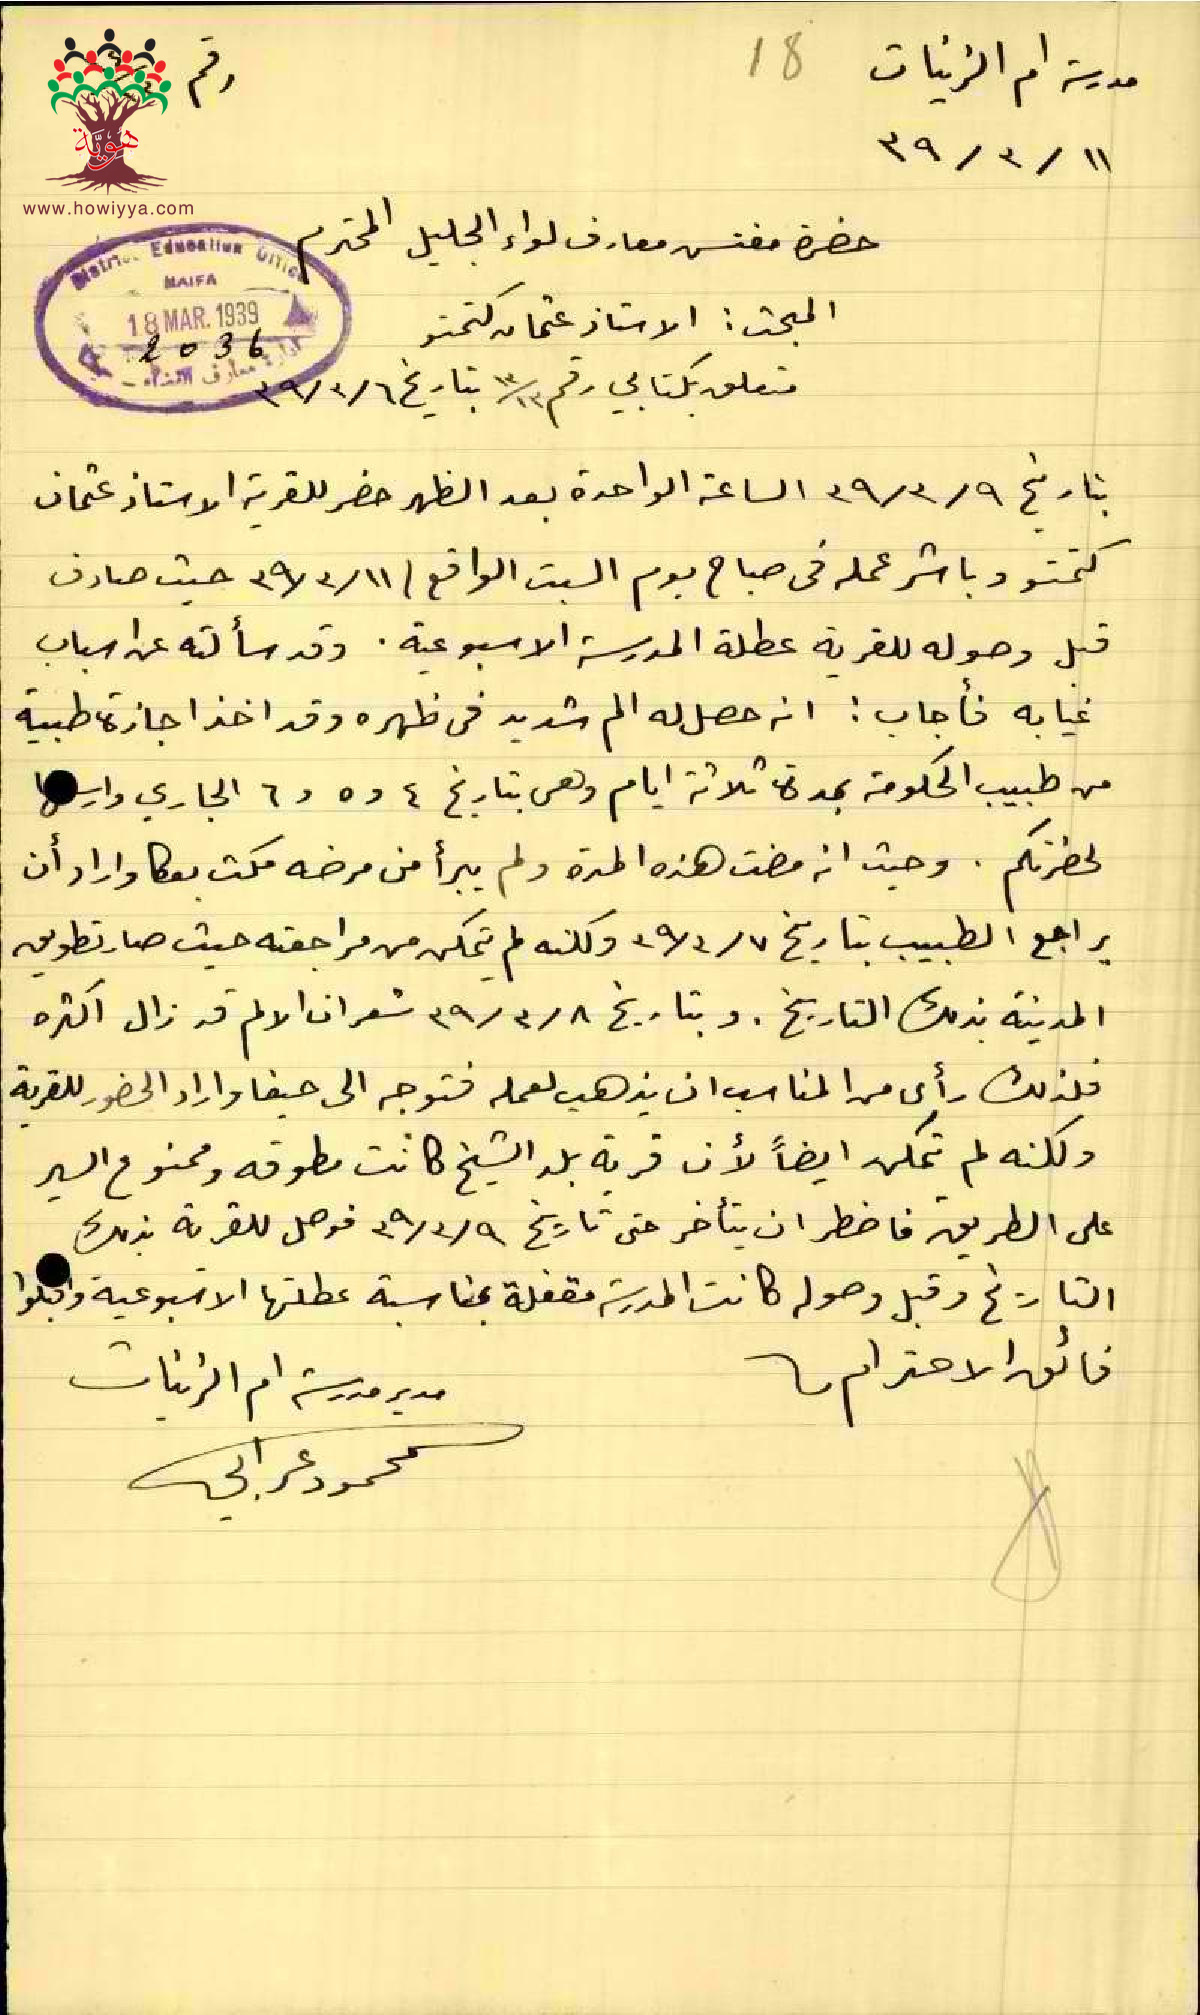 مدرسة ام الزينات
18
رقم
١١ / ٣ / ٣٩
هوية
www.howiyya.com
حضرة مفتش معارف لواء الجليل المحترم
District Education Office
HAIFA
18 MAR. 1939
2036
ادارة معارف اللواء
المبحث : الاستاذ عثمان كتمتو
متعلق بكتابي رقم ١٣/١٣ بتاريخ ٦/٣/٣٩
بتاريخ ٩/٣/٣٩ الساعة الواحدة بعد الظهر حضر للقرية الاستاذ عثمان
كتمتو وباشر عمله في صباح يوم السبت الواقع / ١١/٣/٣٩ حيث صادف
قبل وصوله للقرية عطلة المدرسة الاسبوعية . وقد سألته عن اسباب
غيابه فأجاب : انه حصل له الم شديد في ظهره وقد اخذ اجازة طبية
من طبيب الحكومة بمدة ثلاثة ايام وهي بتاريخ ٤ و ٥ و ٦ الجاري وارسلها
لحضرتكم . وحيث انه مضت هذه المدة ولم يبرأ من مرضه مكث بعكا واراد أن
يراجع الطبيب بتاريخ ٧/٣/٣٩ ولكنه لم يتمكن من مراجعته حيث صار تطويق
المدينة بذلك التاريخ . وبتاريخ ٨/٣/٣٩ شعر ان الالم قد زال اكثره
فلذلك رأى من المناسب ان يذهب لعمله فتوجه الى حيفا واراد الحضور للقرية
ولكنه لم يتمكن ايضاً لأن قرية بلد الشيخ كانت مطوقه وممنوع السير
على الطريق فاضطر ان يتأخر حتى تاريخ ٩/٣/٣٩ فوصل للقرية بذلك
التاريخ وقبل وصوله كانت المدرسة مقفلة بمناسبة عطلتها الاسبوعية واقبلوا
فائق الاحترام
مدير مدرسة ام الزينات
محمود عرابي